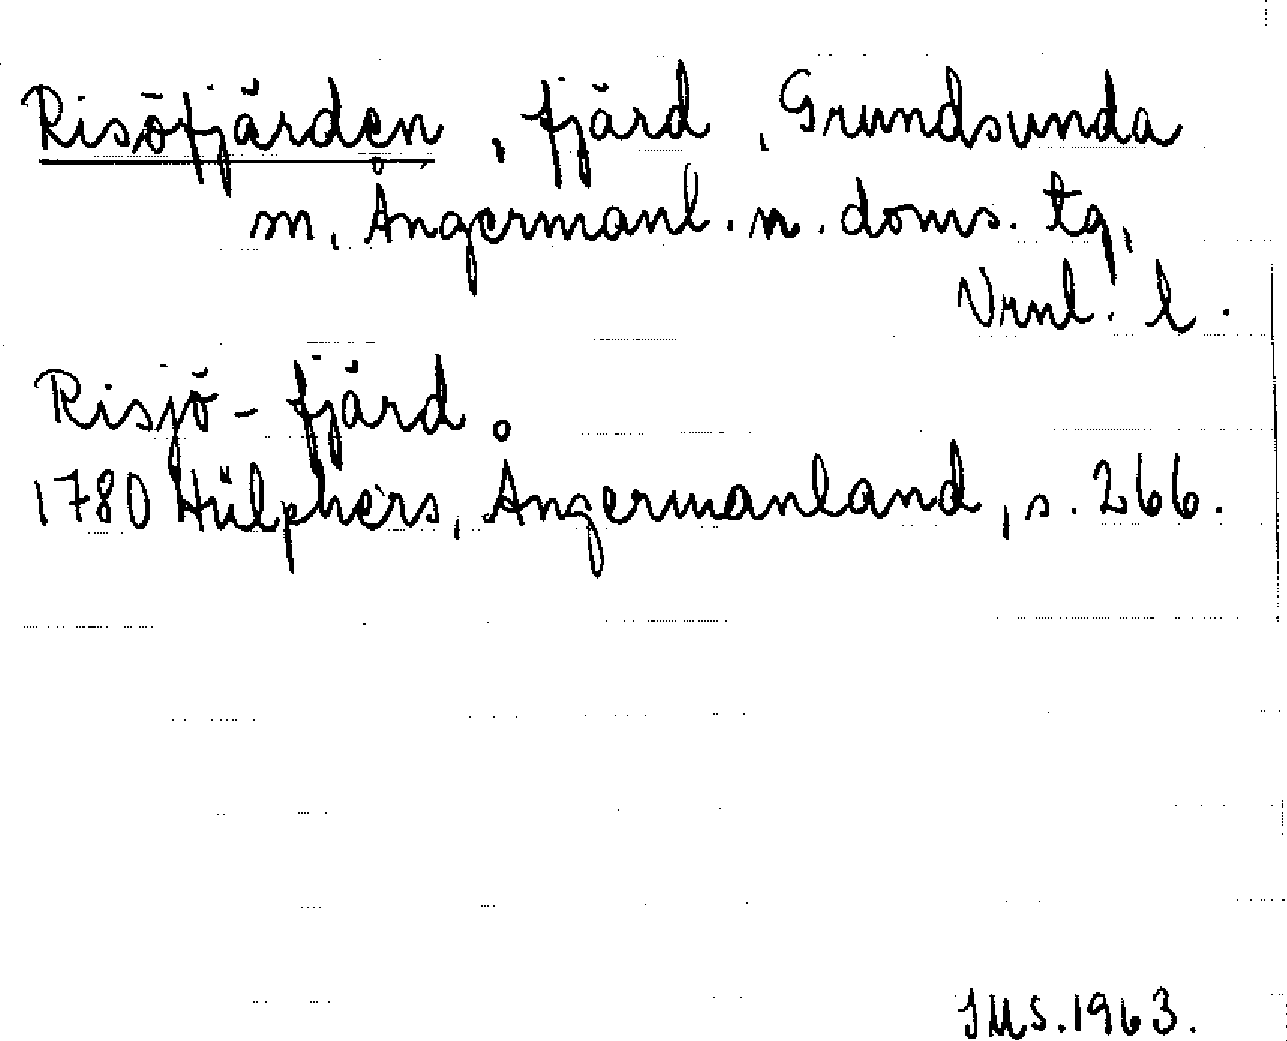 Risöfjärden, fjärd, Grundsunda
sn, Ångermanl. n. doms. tg,
Vrnl. l.
Risjö-fjärd.
1780 Hülphers, Ångermanland, s. 266.
IMS. 1963.